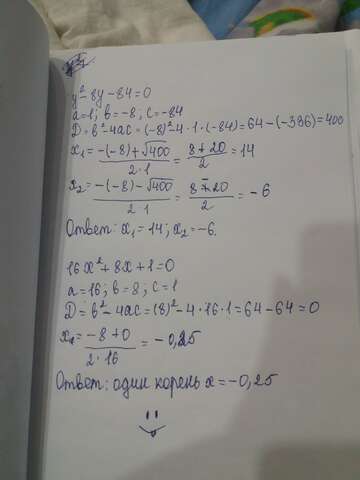 y²-8y-84=0
a=1; b=-8; c=-84
D=b²-4ac=(-8)²-4·1·(-84)=64-(-336)=400
x₁=-(-8)+√400/2·1=8+20/2=14
x₂=-(-8)-√400/2·1=8-20/2=-6
Ответ: x₁=14; x₂=-6.
16x²+8x+1=0
a=16; b=8; c=1
D=b²-4ac=(8)²-4·16·1=64-64=0
x₁=-8+0/2·16=-0,25
Ответ: один корень x=-0,25